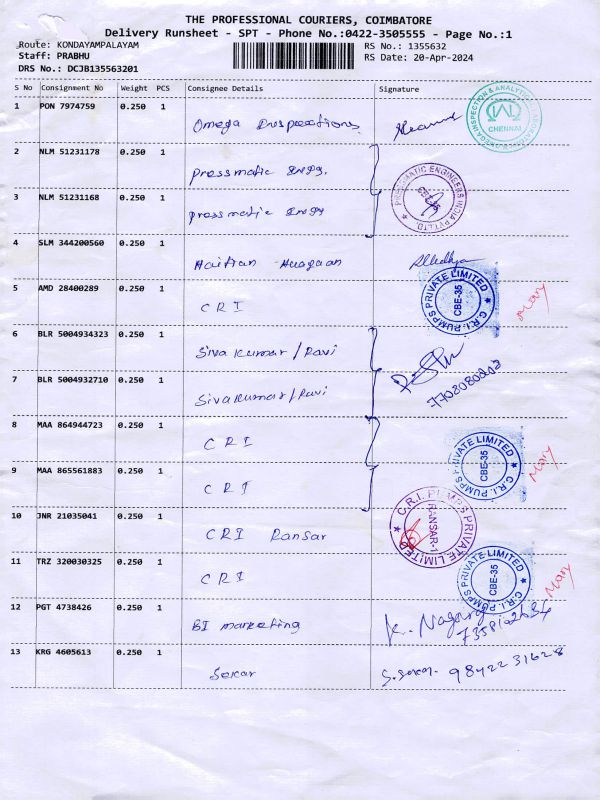 THE PROFESSIONAL COURIERS, COIMBATORE
Delivery Runsheet - SPT - Phone No.:0422-3505555 - Page No.:1
Route: KONDAYAMPALAYAM RS No.: 1355632
Staff: PRABHU RS Date: 20-Apr-2024
DRS No.: DCJB135563201
S No Consignment No Weight PCS Consignee Details Signature
1 PON 7974759 0.250 1 Omega Inspections
CHENNAI
2 NLM 51231178 0.250 1 Pressmatic Engg.
3 NLM 51231168 0.250 1 Pressmatic Engg
PRESSMATIC ENGINEERS INDIA PVT.LTD.
4 SLM 344200560 0.250 1 Haitian Huayaan
5 AMD 28400289 0.250 1 CRI
C.R.I. PUMPS PRIVATE LIMITED CBE-35 Mary
6 BLR 5004934323 0.250 1 Siva Kumar / Ravi
7 BLR 5004932710 0.250 1 Siva Kumar / Ravi
8 MAA 864944723 0.250 1 CRI
9 MAA 865561883 0.250 1 CRI
C.R.I. PUMPS PRIVATE LIMITED CBE-35 Mary
10 JNR 21035041 0.250 1 CRI Ransar
C.R.I. PUMPS PRIVATE LIMITED RANSAR-1
11 TRZ 320030325 0.250 1 CRI
C.R.I. PUMPS PRIVATE LIMITED CBE-35 Mary
12 PGT 4738426 0.250 1 BI marketing K. Nagaraj
13 KRG 4605613 0.250 1 Sekar S. Sekar. 9842231628